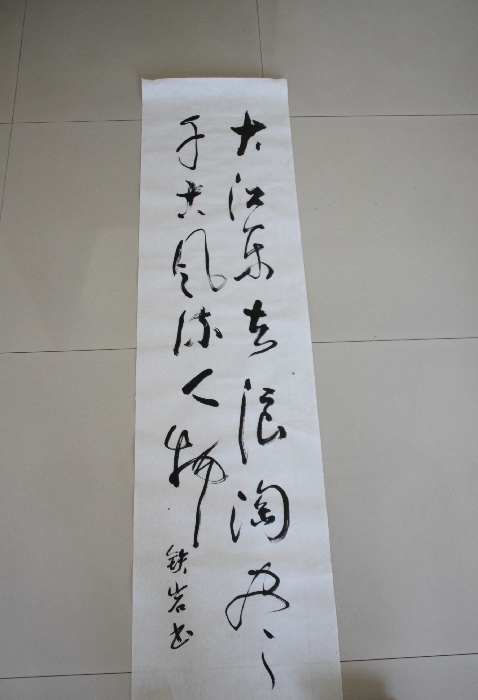 大江东去浪淘尽
千古风流人物
铁岩书